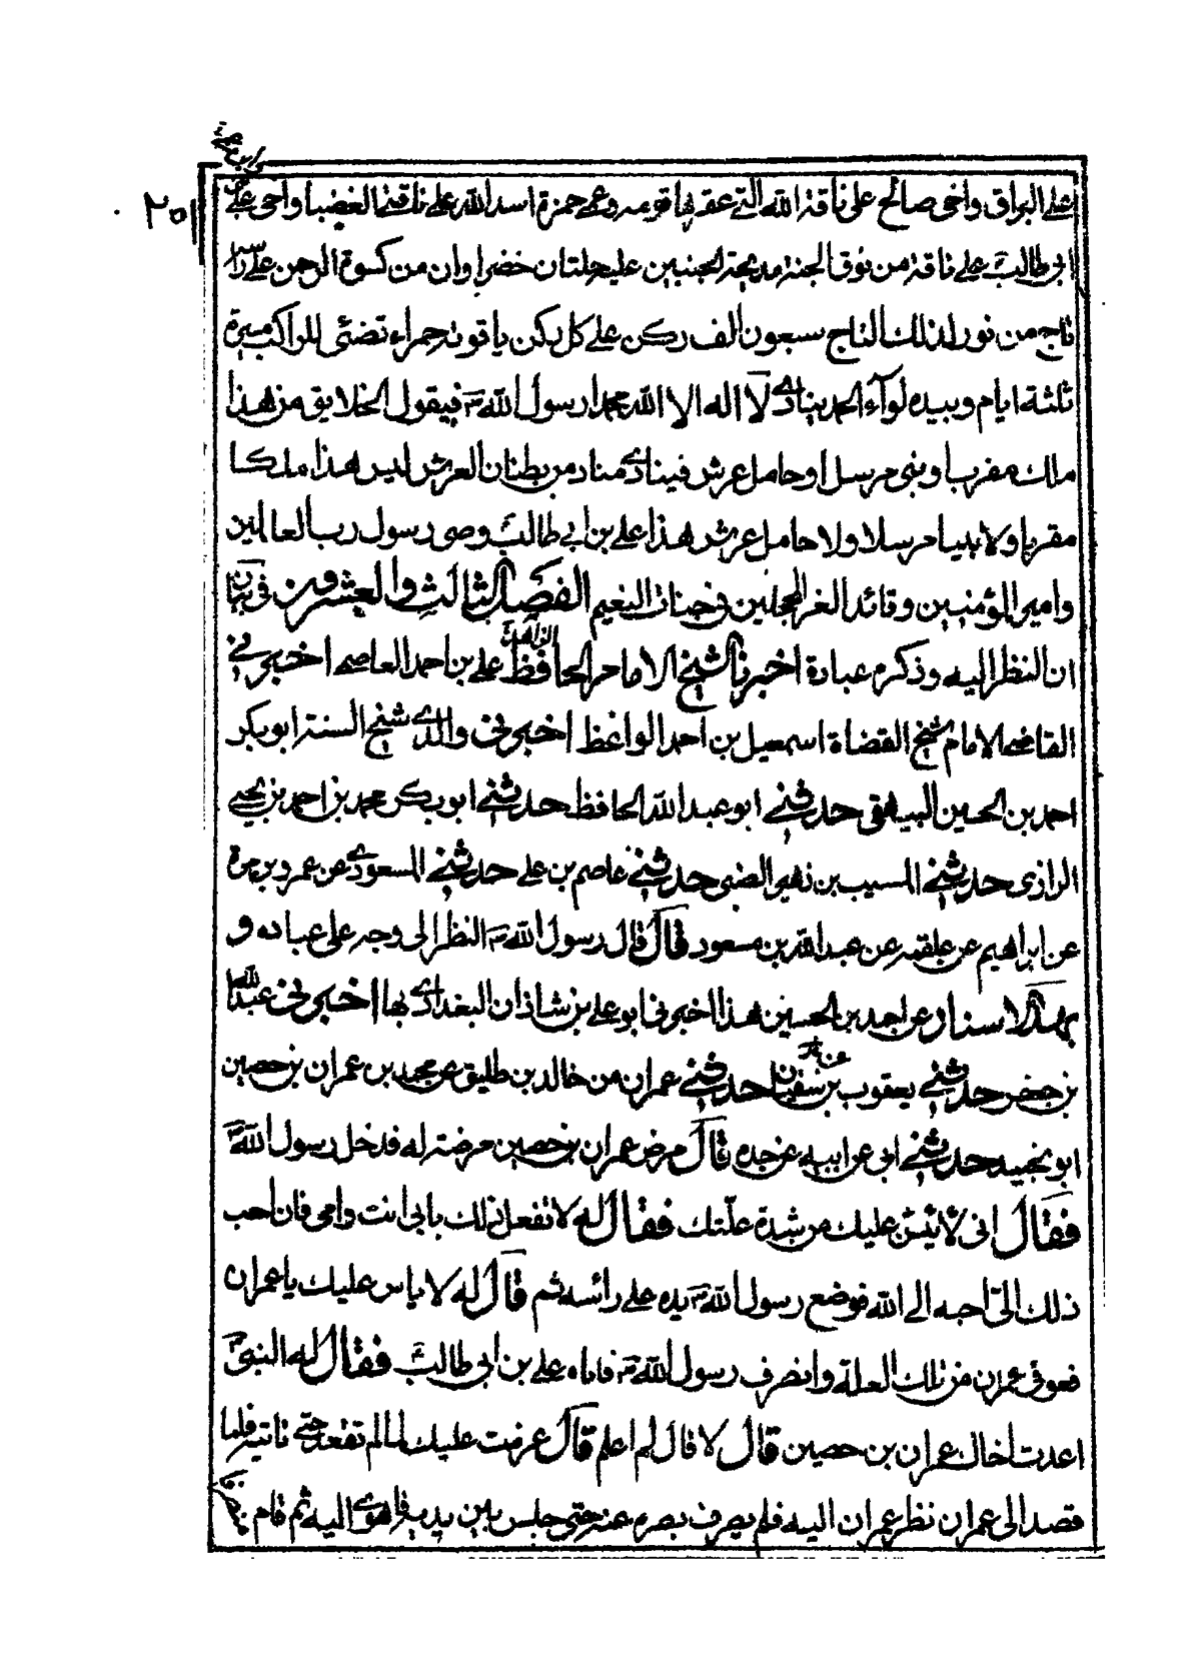 ٢٠١
على البراق واخى صالح على ناقة الله التى عقرها قومه وعمى حمزة اسد الله على ناقتى الغضبا واخى على بن
ابى طالبؑ على ناقة من نوق الجنة مدبجة الجنبين عليه حلتان خضراوان من كسوة الرحمن على راسه
تاج من نور لذلك التاج سبعون الف ركن على كل ركن ياقوتة حمراء تضئى للراكب مسيرة
ثلثة ايام وبيده لوآء الحمد ينادى لا اله الا الله محمدا رسول اللهؐ فيقول الخلايق من هذا
ملك مقرب او نبى مرسل او حامل عرش فينادى مناد من بطنان العرش ليس هذا ملكا
مقربا ولا نبيا مرسلا ولا حامل عرش هذا على بن ابى طالبؑ وصى رسول رب العالمين
وامير المؤمنين وقائد الغر المحجلين فى جنات النعيم الفصل الثالث والعشرون فى بيان
ان النظر اليه وذكره عبادة اخبرنا الشيخ الامام الحافظ الزاهد على بن احمد العاصمى اخبرنى
القاضى الامام شيخ القضاة اسمعيل بن احمد الواعظ اخبرنى والدى شيخ السنة ابو بكر
احمد بن الحسين البيهقى حدثنى ابو عبد الله الحافظ حدثنى ابو بكر محمد بن احمد بن يحيى
الرازى حدثنى المسيب بن زهير الضبى حدثنى عاصم بن على حدثنى المسعودى عن عمرو بن مرة
عن ابراهيم عن علقمه عن عبد الله بن مسعود قال قال رسول اللهؐ النظر الى وجه على عباده و
بهذا الاسناد عن احمد بن الحسين هذا اخبرنى ابو على بن شاذان البغدادى بها اخبرنى عبد الله
بن جعفر حدثنى يعقوب بن سفيان حدثنى عمران من خالد بن طليق عن محمد بن عمران بن حصين
ابو نجيد حدثنى ابى عن ابيه عن جده قال مرض عمران بن حصين مرضة له فدخل رسول اللهؐ
فقال انى لايئس عليك من شدة علتك فقال له لا تفعل ذلك بابى انت وامى فان احب
ذلك الىّ احبه الى الله فوضع رسول اللهؐ يده على رائسه ثم قال له لا باس عليك يا عمران
فعوفى عمران من تلك العلة وانصرف رسول اللهؐ فاتاه على بن ابى طالبؑ فقال له النبىؐ
اعدت اخاك عمران بن حصين قال لا قال لم اعلم قال عزمت عليك لما لم تقعد حتى تاتيه فلما
قصد الى عمران نظر عمران اليه فلم يصرف بصره عنه حتى جلس بين يديه فاهوى اليه ثم قام